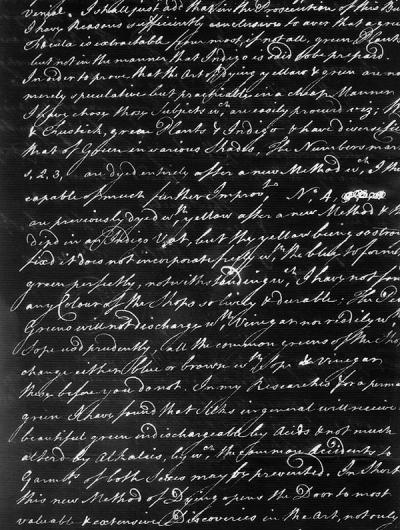 venial. I shall just add that in the Prosecution of this Bu
I have Reasons sufficiently conclusive to aver that a gree
Fæcula is extractable from most, if not all, green Plants
but not in the manner that Indigo is said to be prepard.
In order to prove that the Art of Dying yellow & green are no
merely speculative but practicable in a cheap Manner
I have chose those Subjects wch. are easily procured viz;
& Caustick, green Plants & Indigo & have diversified
that of Green in various Shades, The Numbers mark
1, 2, 3, are dyed entirely after a new Method wch. I th
capable of much further Improvt. No. 4,
are previously dyed wth. yellow after a new Method & th
died in an Indigo Vat, but the yellow being so stron
fixd it does not incorporate freely wth. the blue to form
green perfectly, notwithstanding wch. I have not foun
any Colour of the Shops so lively & durable; The
Greens will not discharge wth. Vinegar nor readily wth
Sope usd prudently, all the common greens of the Shop
change either blue or brown wth. Sope & vinegar
these before you do not. In my Researches for a perma
green I have found that Silks in general will receive
beautiful green indischargeable by Acids & not much
alterd by Alkalies, by wch. the common Accidents to
Garmts. of both Sexes may be prevented. In Short
this new Method of Dying opens the Door to most
valuable & extensive Discoveries in the Art, not only